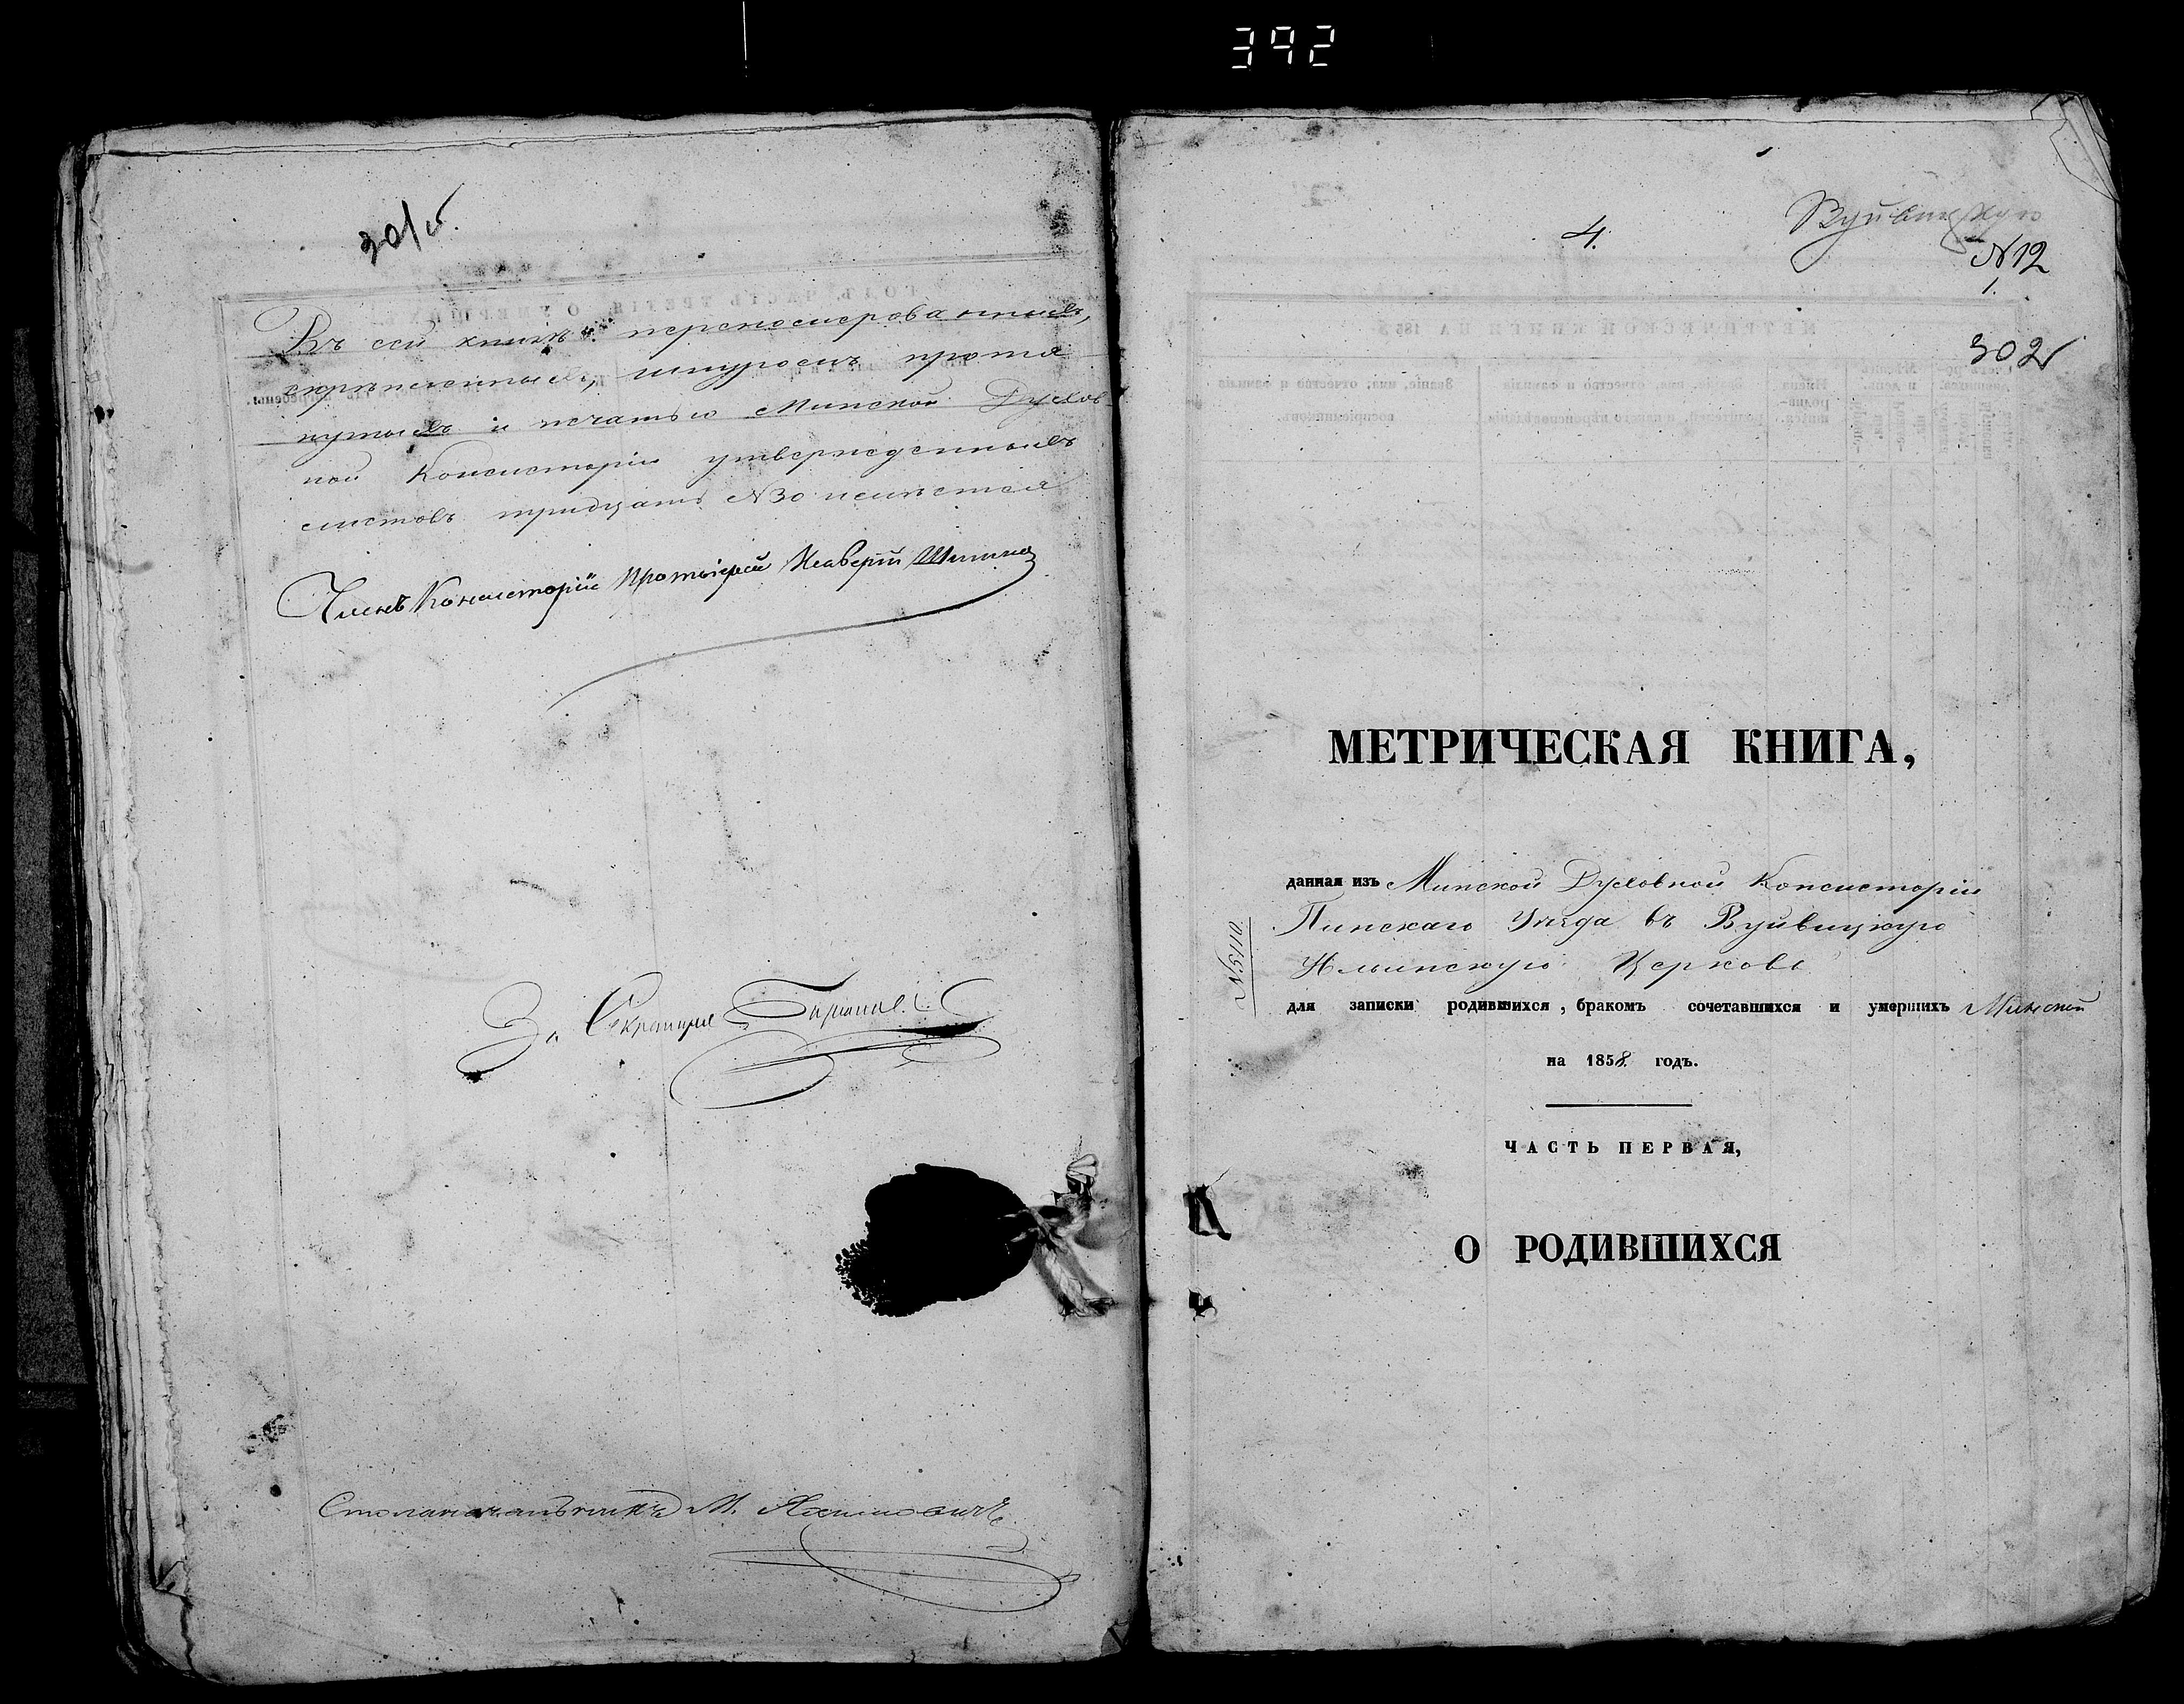 392
301 об.
Въ сей книгѣ перенумерованныхъ,
скрѣпленныхъ, шнуромъ протя
нутыхъ и печатью Минской Духов
ной Консисторіи утвержденныхъ
листовъ тридцать №30 имѣется
Членъ Консисторіи Протоіерей
За Секретаря
Столоначальникъ М.
4.
Вуйвицкую
№12
1.
302
МЕТРИЧЕСКАЯ КНИГА,
данная изъ Минской Духовной Консисторіи
Пинскаго Уѣзда въ Вуйвицкую
Ильинскую Церковь
№5110
для записки родившихся, бракомъ сочетавшихся и умершихъ
на 1858. годъ.
ЧАСТЬ ПЕРВАЯ,
О РОДИВШИХСЯ